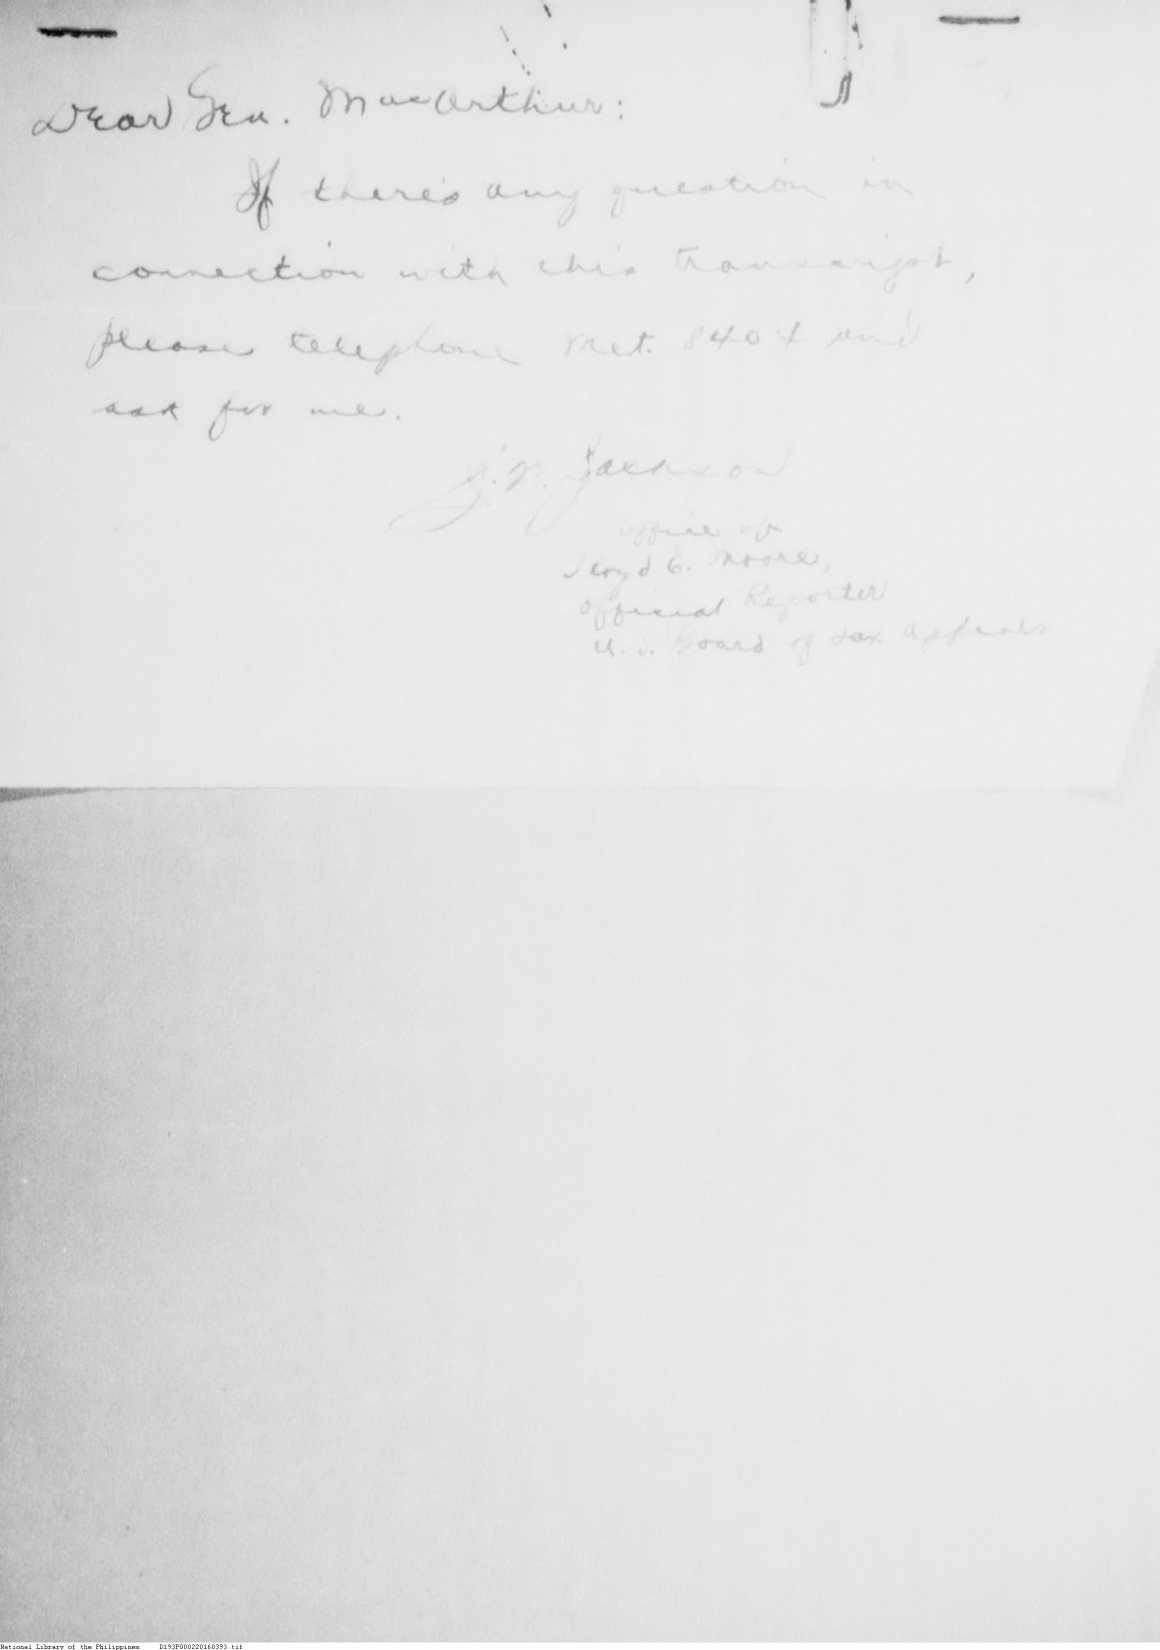 Dear Gen. MacArthur:
If there's any question in
connection with this transcript,
please telephone Met. 8404 and
ask for me.
J. N. Jackson
Office of
Lloyd C. Moore,
Official Reporter
U. S. Board of Tax Appeals
National Library of the Philippines D193P000220160393.tif